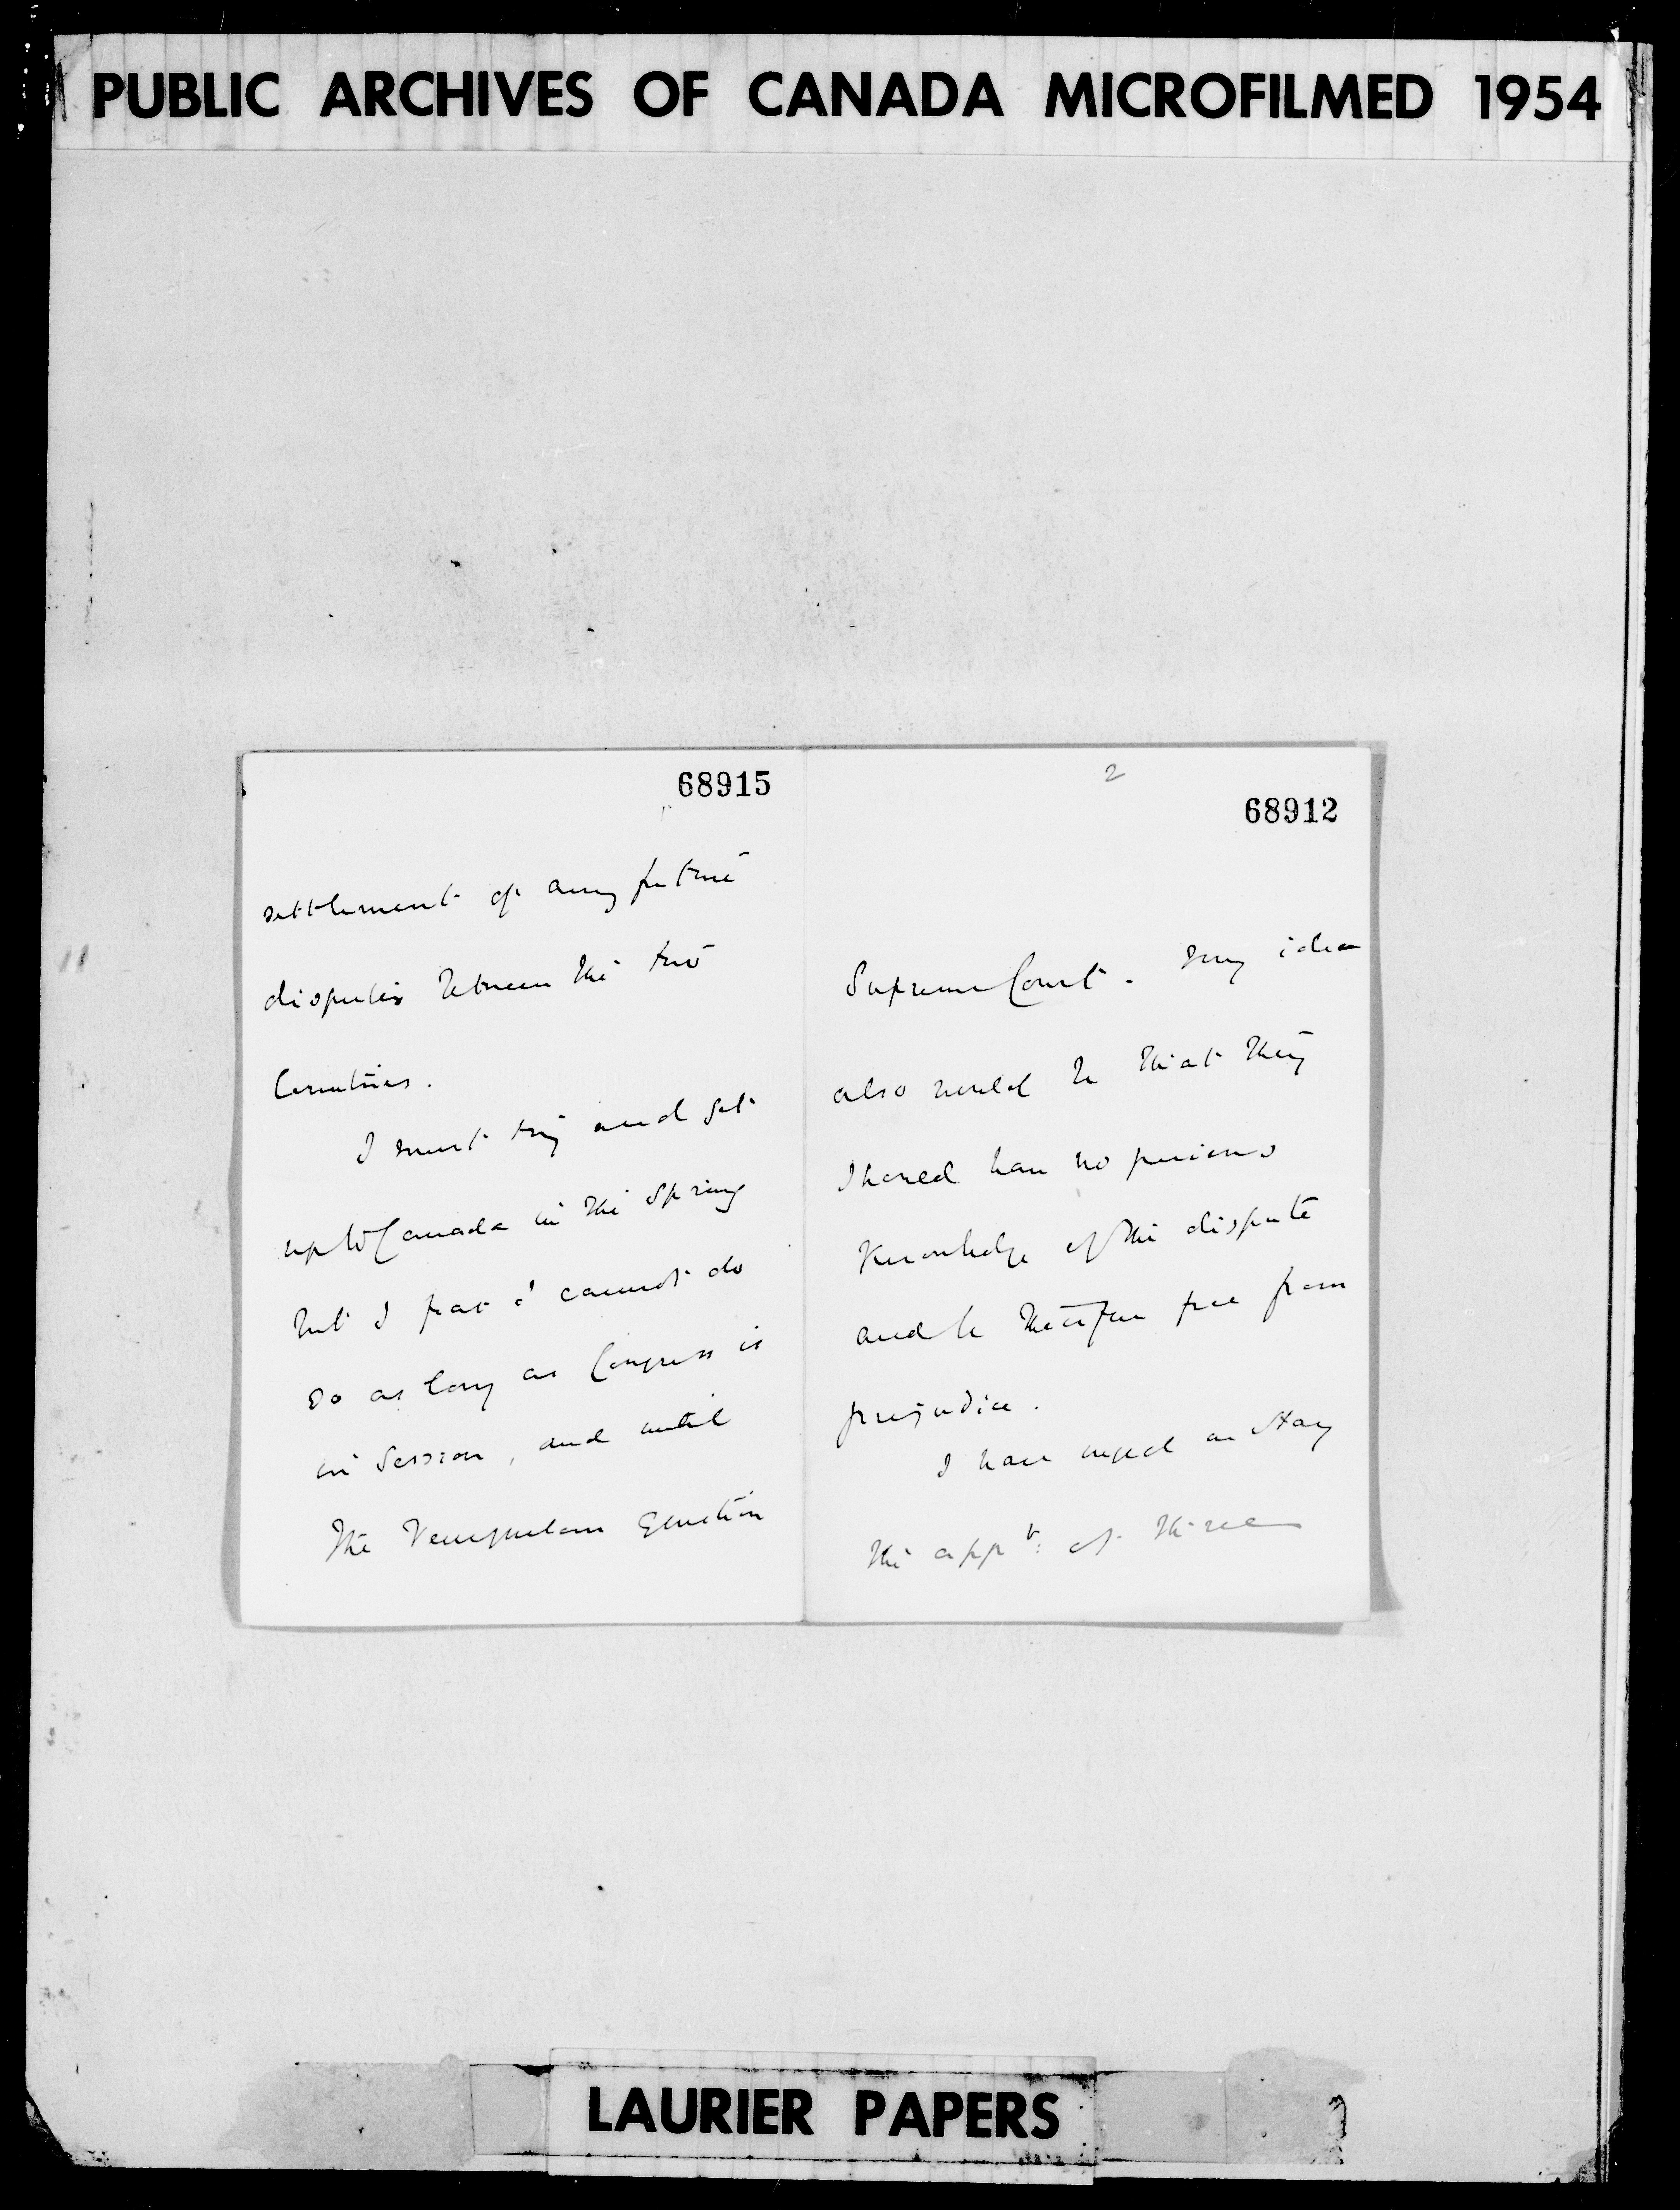 PUBLIC ARCHIVES OF CANADA MICROFILMED 1954
68915
settlement of any future
disputes between the two
Countries.
I must try and get
up to Canada in the Spring
but I fear I cannot do
so as long as Congress is
in Session, and until
the Venezuelan Question
2
68912
Supreme Court. My idea
also would be that they
should have no previous
Knowledge of the dispute
and be therefore free from
prejudice.
I have urged on Hay
the appt: of three
LAURIER PAPERS